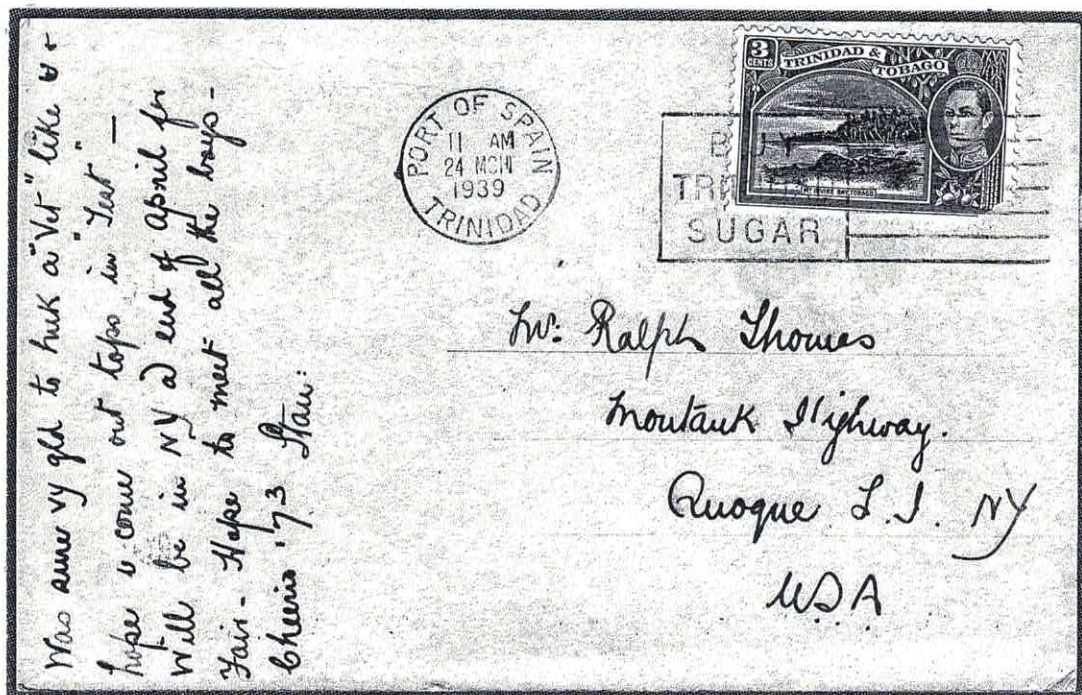 Was sure vy gld to huk a "Vet" like u &
hope u come out tops in "Test" —
Will be in NY @ end of April for
Fair - Hope to meet all the boys -
Cheerio '73 Stan:
PORT OF SPAIN
11 AM
24 MCH
1939
TRINIDAD
3
CENTS
TRINIDAD &
TOBAGO
BUY
SUGAR
Mr: Ralph Thomas
Montauk Highway.
Quogue L.I. NY
USA